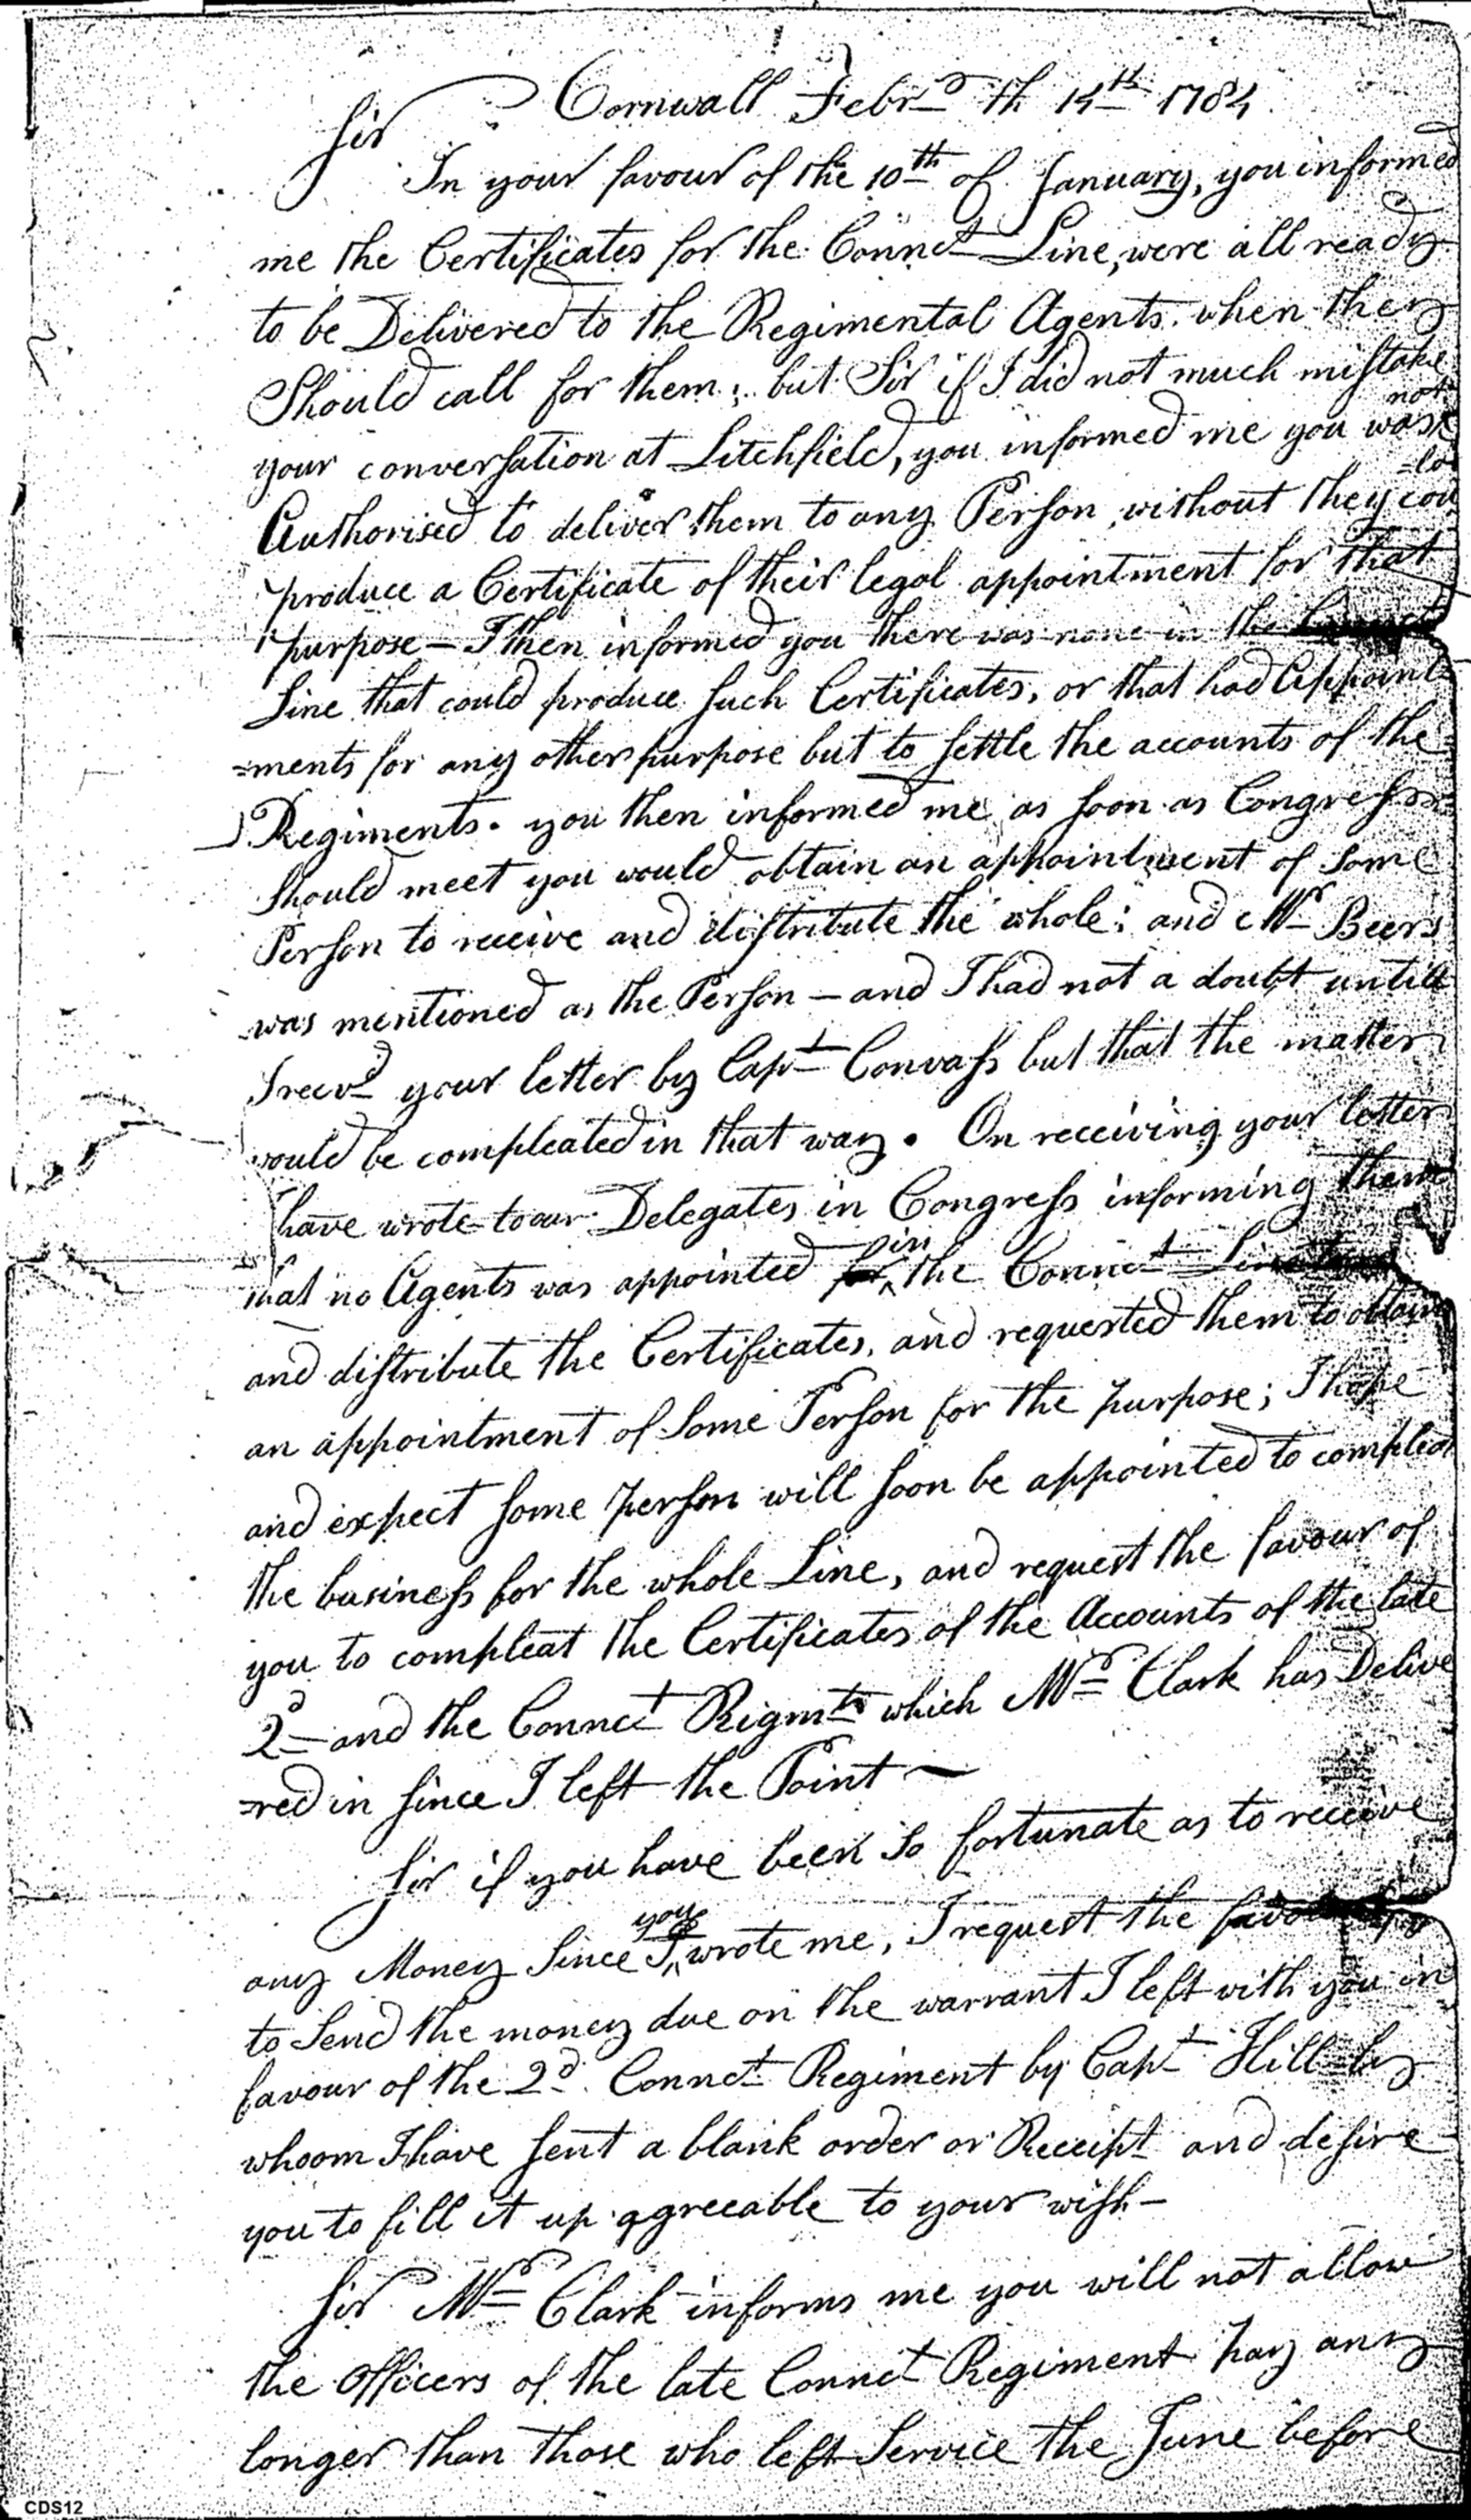 Cornwall Febry th 14th 1784
Sir
In your favour of the 10th of January, you informed
me the Certificates for the Connct Line, were all ready
to be Delivered to the Regimental Agents. when they
Should call for them; but Sir if I did not much mistake
your conversation at Litchfield, you informed me you was not
Authorised to deliver them to any Person, without they could
produce a Certificate of their legal appointment for that
purpose — I then informed you there was none in the Connct
Line that could produce such Certificates, or that had Appoint
=ments for any other purpose but to settle the accounts of the
Regiments. you then informed me as soon as Congress
Should meet you would obtain an appointment of some
Person to receive and distribute the whole; and Mr Beers
was mentioned as the Person — and I had not a doubt untill
I recvd your letter by Capt Convass but that the matter
would be compleated in that way. On receiving your letter
have wrote to our Delegates in Congress informing them
that no Agents was appointed for in the Connct Line
and distribute the Certificates, and requested them to obtain
an appointment of some Person for the purpose; I hope
and expect some person will soon be appointed to compleat
the business for the whole Line, and request the favour of
you to compleat the Certificates of the Accounts of the late
2d and the Connct Rigmts which Mr Clark has Delive
=red in since I left the Point —
Sir if you have been so fortunate as to receive
any Money Since I you wrote me, I request the favour
to Send the money due on the warrant I left with you in
favour of the 2d Connct Regiment by Capt Hill by
whoom I have sent a blank order or Receipt and desire
you to fill it up agreeable to your wish —
Sir Mr Clark informs me you will not allow
the Officers of the late Connct Regiment pay any
longer than those who left Service the June before
CDS12